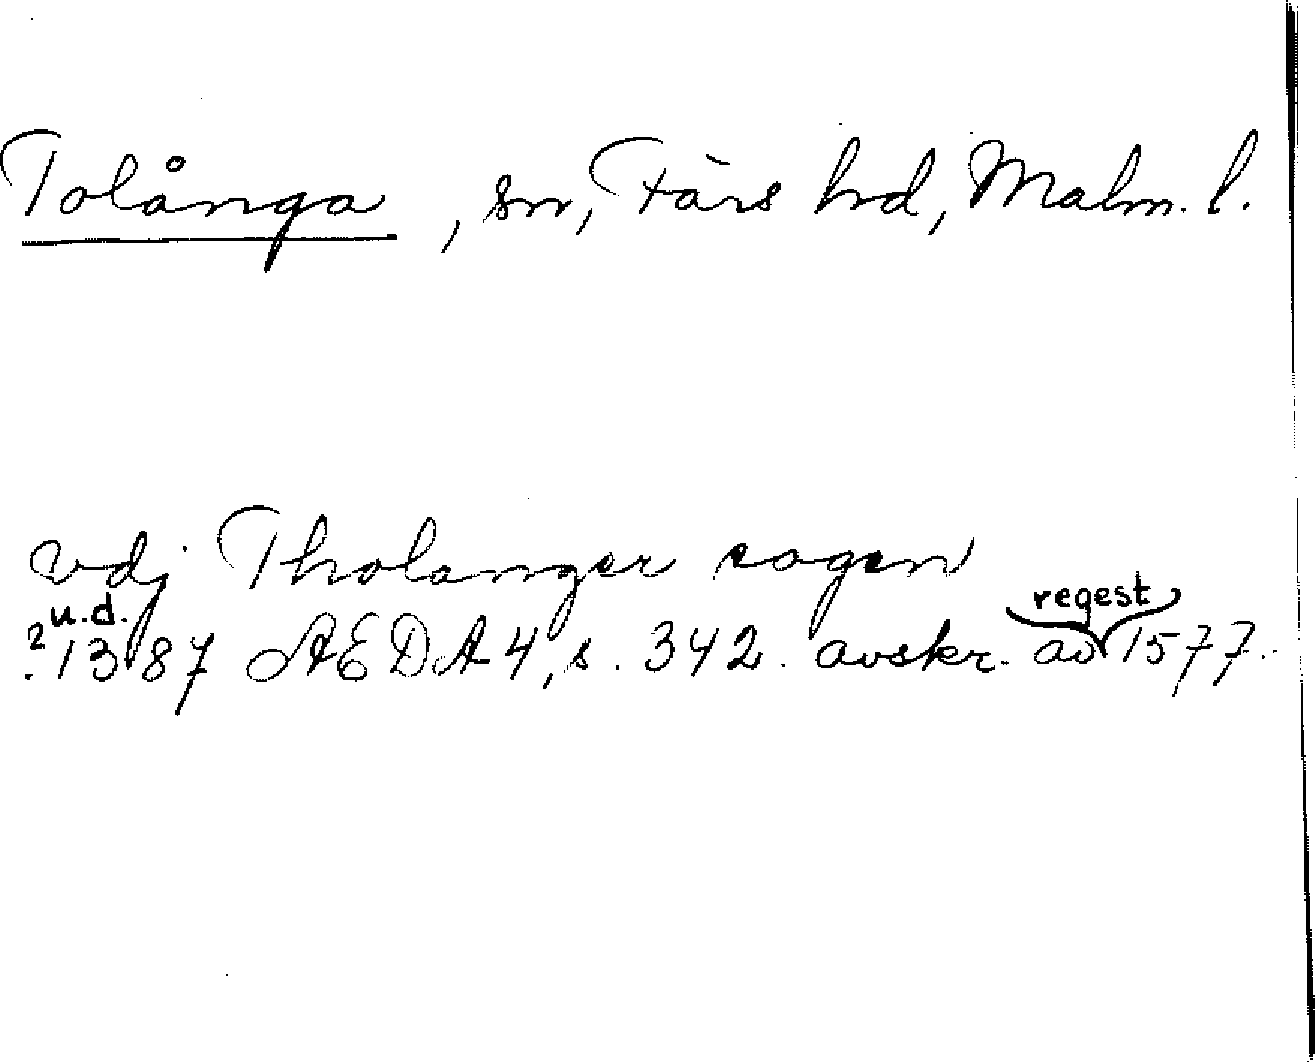 Tolånga, sn, Färs hd, Malm. l.
vdj Tholanger sogen
u.d. regest
? 1387 AEDA 4, s. 342. avskr. av 1577.